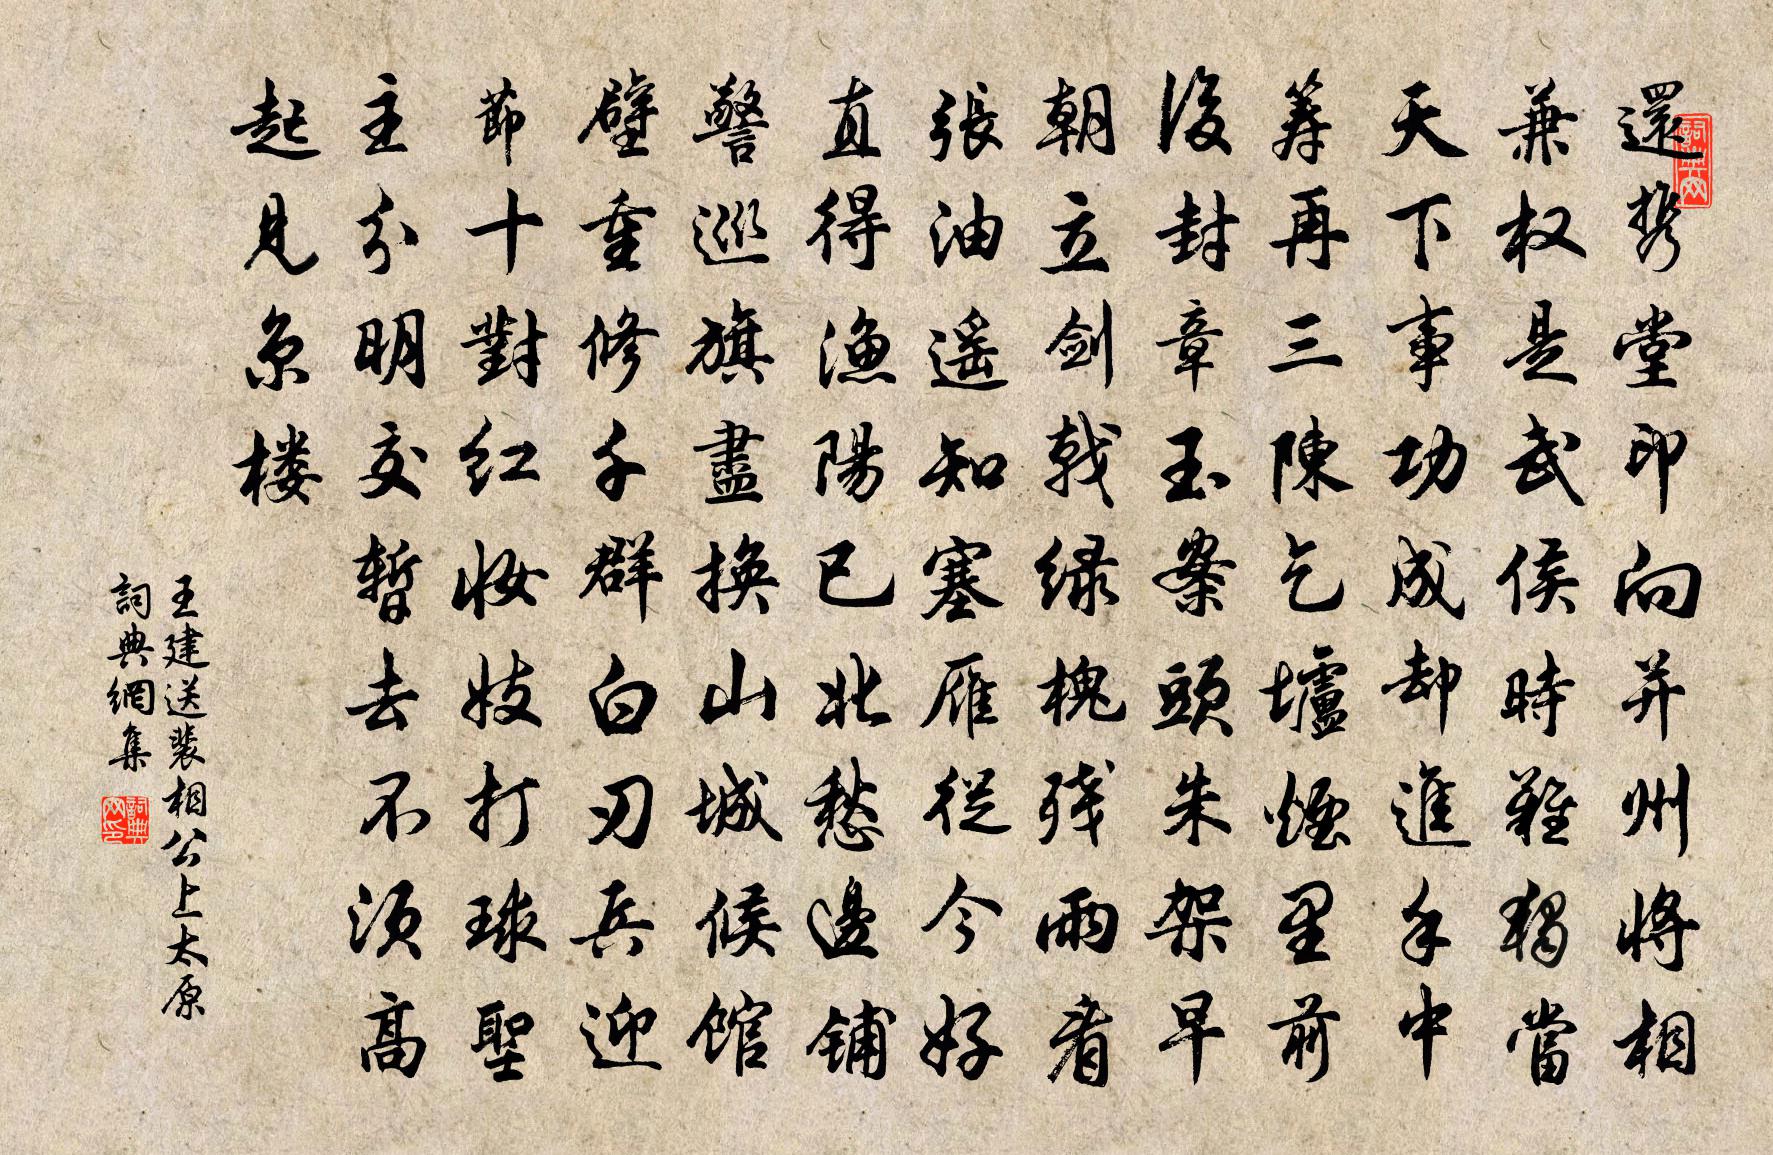 還携堂印向并州將相
兼权是武侯時難獨當
天下事功成却進手中
筹再三陳乞壚煙里前
後封章玉案頭朱架早
朝立剑戟绿槐残雨看
張油遥知塞雁從今好
直得漁陽已北愁邊铺
警巡旗盡換山城候馆
壁重修千群白刃兵迎
節十對红妝妓打球聖
主分明交暫去不须高
起見京楼
王建送裴相公上太原
詞典網集
詞典网
詞典网印